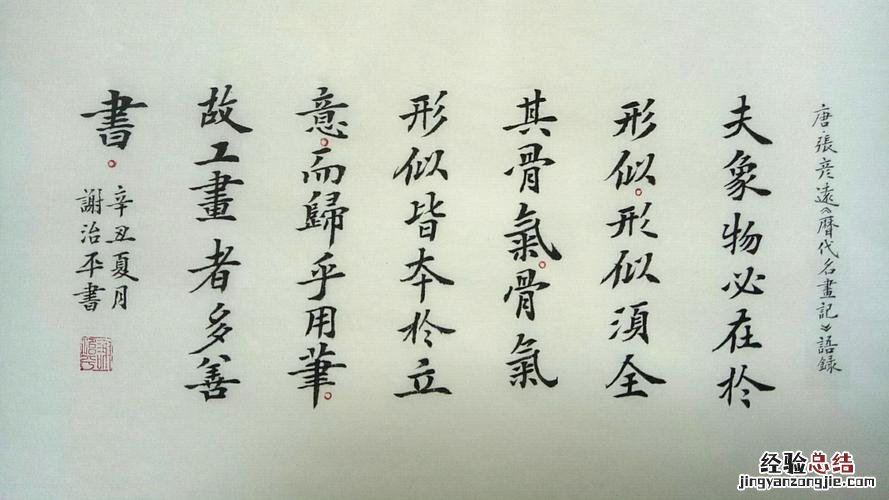 唐·張彦遠《曆代名畫記》語録
夫象物必在於
形似。形似須全
其骨氣。骨氣
形似皆本於立
意。而歸乎用筆。
故工畫者多善
書。
辛丑夏月
謝治平書
经验总结
jingyanzongjie.com